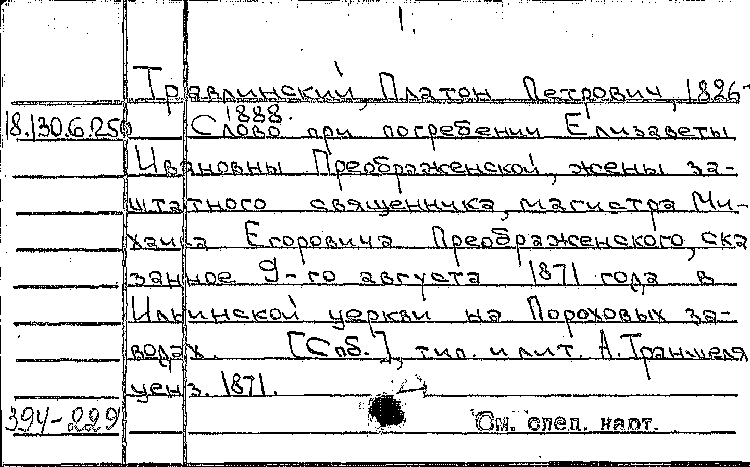 1.
Травлинский, Платон Петрович, 1826-
1888.
18.130.6.250 Слово при погребении Елизаветы
Ивановны Преображенской, жены за-
штатного священника, магистра Ми-
хаила Егоровича Преображенского, ска
занное 9-го августа 1871 года в
Ильинской церкви на Пороховых за-
водах. [Спб.], тип. и лит. А. Траншеля
ценз. 1871.
394-229 См. спец. карт.